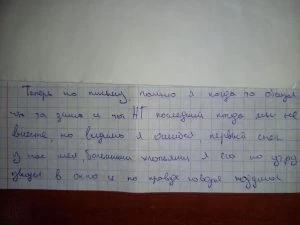 Теперь по письму, помню я когда то обещал
что та зима и ты НГ последний когда мы не
вместе, но видимо я ошибся, первый снег
у нас шел большими хлопьями я его по утру
увидел в окно и по правде говоря